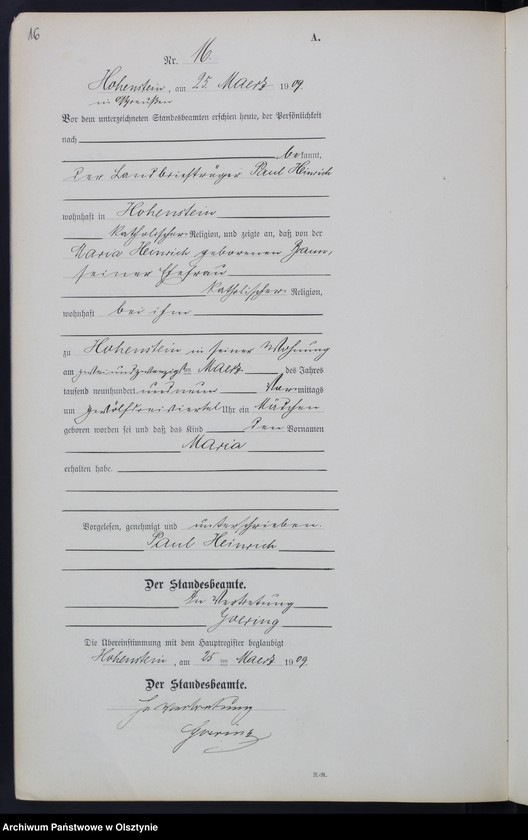 16
A.
Nr. 16.
Hohenstein, am 25. Maerz 1909.
in Ostpreußen
Vor dem unterzeichneten Standesbeamten erschien heute, der Persönlichkeit
nach
bekannt,
der Landbriefträger Paul Heinrich
wohnhaft in Hohenstein
katholischer Religion, und zeigte an, daß von der
Maria Heinrich geborenen
seiner Ehefrau
katholischer Religion,
wohnhaft bei ihm
zu Hohenstein in seiner Wohnung
am zweiundzwanzigsten Maerz des Jahres
tausend neunhundert und neun Vormittags
um zwölf dreiviertel Uhr ein Mädchen
geboren worden sei und daß das Kind den Vornamen
Maria
erhalten habe.
Vorgelesen, genehmigt und unterschrieben.
Paul Heinrich
Der Standesbeamte.
In Vertretung
Goering
Die Übereinstimmung mit dem Hauptregister beglaubigt
Hohenstein, am 25ten Maerz 1909
Der Standesbeamte.
In Vertretung
Goering
Archiwum Państwowe w Olsztynie